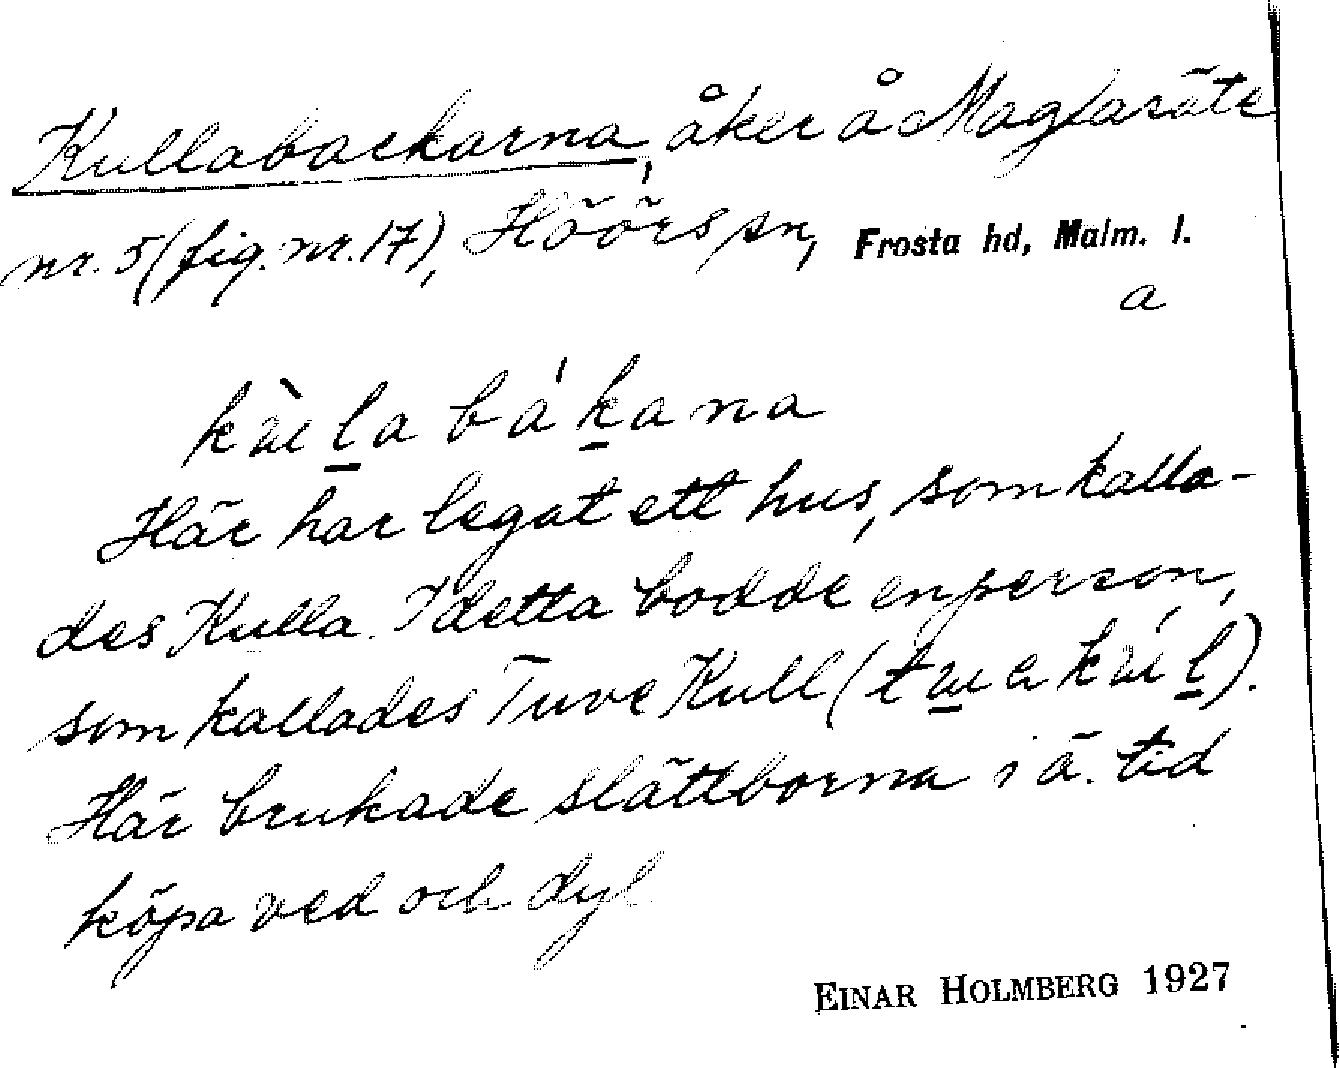 Kullabackarna, åker å Maglasäte
nr. 5 (fig. nr. 17), Höörs sn, Frosta hd, Malm. l.
a
Här har legat ett hus, som kalla-
des Kulla. I detta bodde en person,
som kallades Tuve Kull
Här brukade slättborna i ä. tid
köpa ved och dyl.
EINAR HOLMBERG 1927